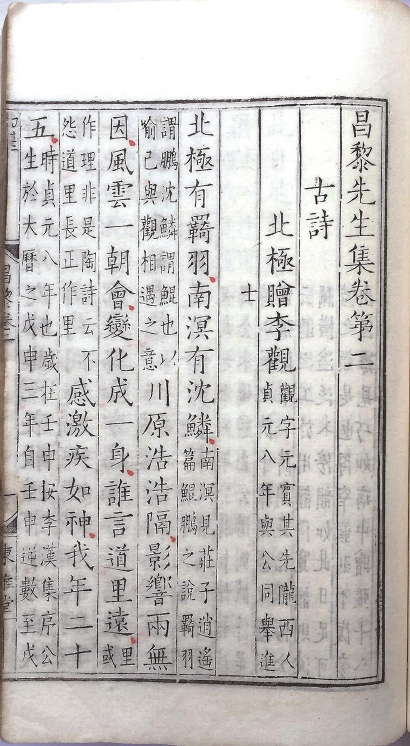 昌黎先生集卷第二
古詩
北極贈李觀觀字元賓其先隴西人
貞元八年與公同舉進
士
北極有羇羽南溟有沈鱗南溟見莊子逍遙
篇鯤鵬之說羇羽
謂鵬沈鱗謂鯤也以
喻已與觀相遇之意川原浩浩隔影響兩無
因風雲一朝會變化成一身誰言道里遠里
或
作理非是陶詩云不
怨道里長正作里感激疾如神我年二十
五時貞元八年也歲在壬申按李漢集序公
生於大曆之戊申三年自壬申逆數至戊
昌黎卷二
東雅堂